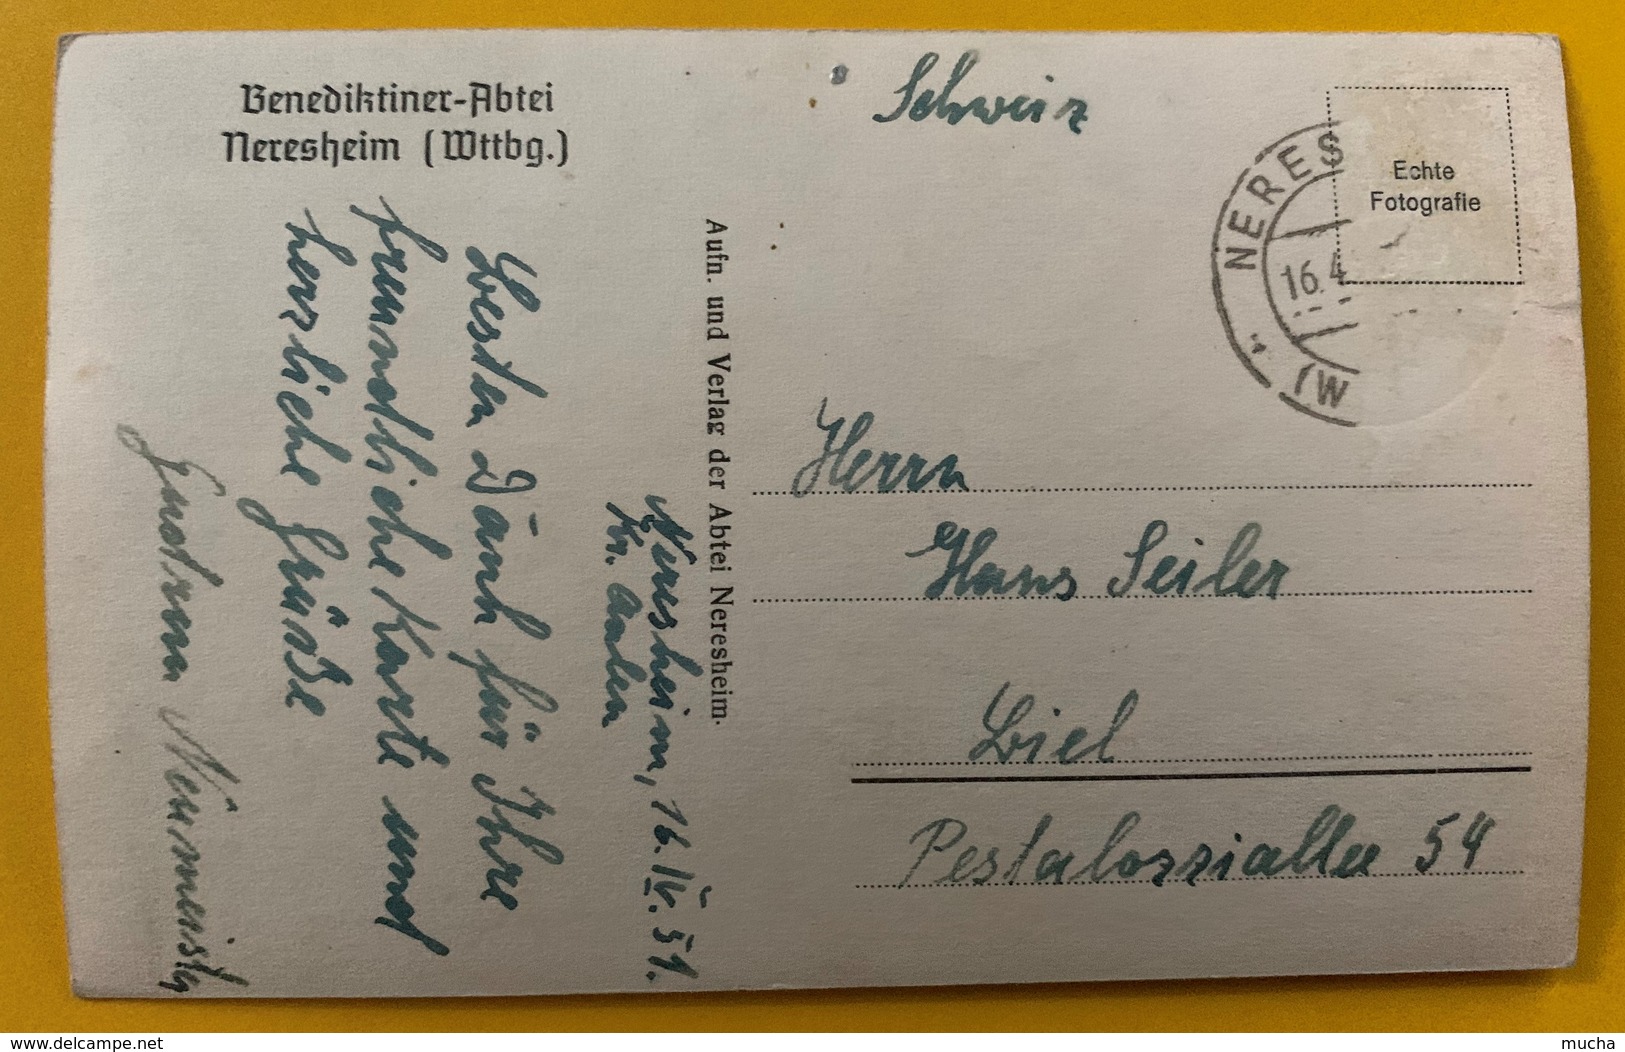 Benediktiner-Abtei
Neresheim (Wttbg.)
Neresheim, 16. IV. 51.
Kr. Aalen
Besten Dank für Ihre
freundliche Karte und
herzliche Grüsse
Aufn. und Verlag der Abtei Neresheim.
Schweiz
NERES
16.4
(W
Echte
Fotografie
Herrn
Hans Seiler
Biel
Pestalozziallee 54
www.delcampe.net
mucha